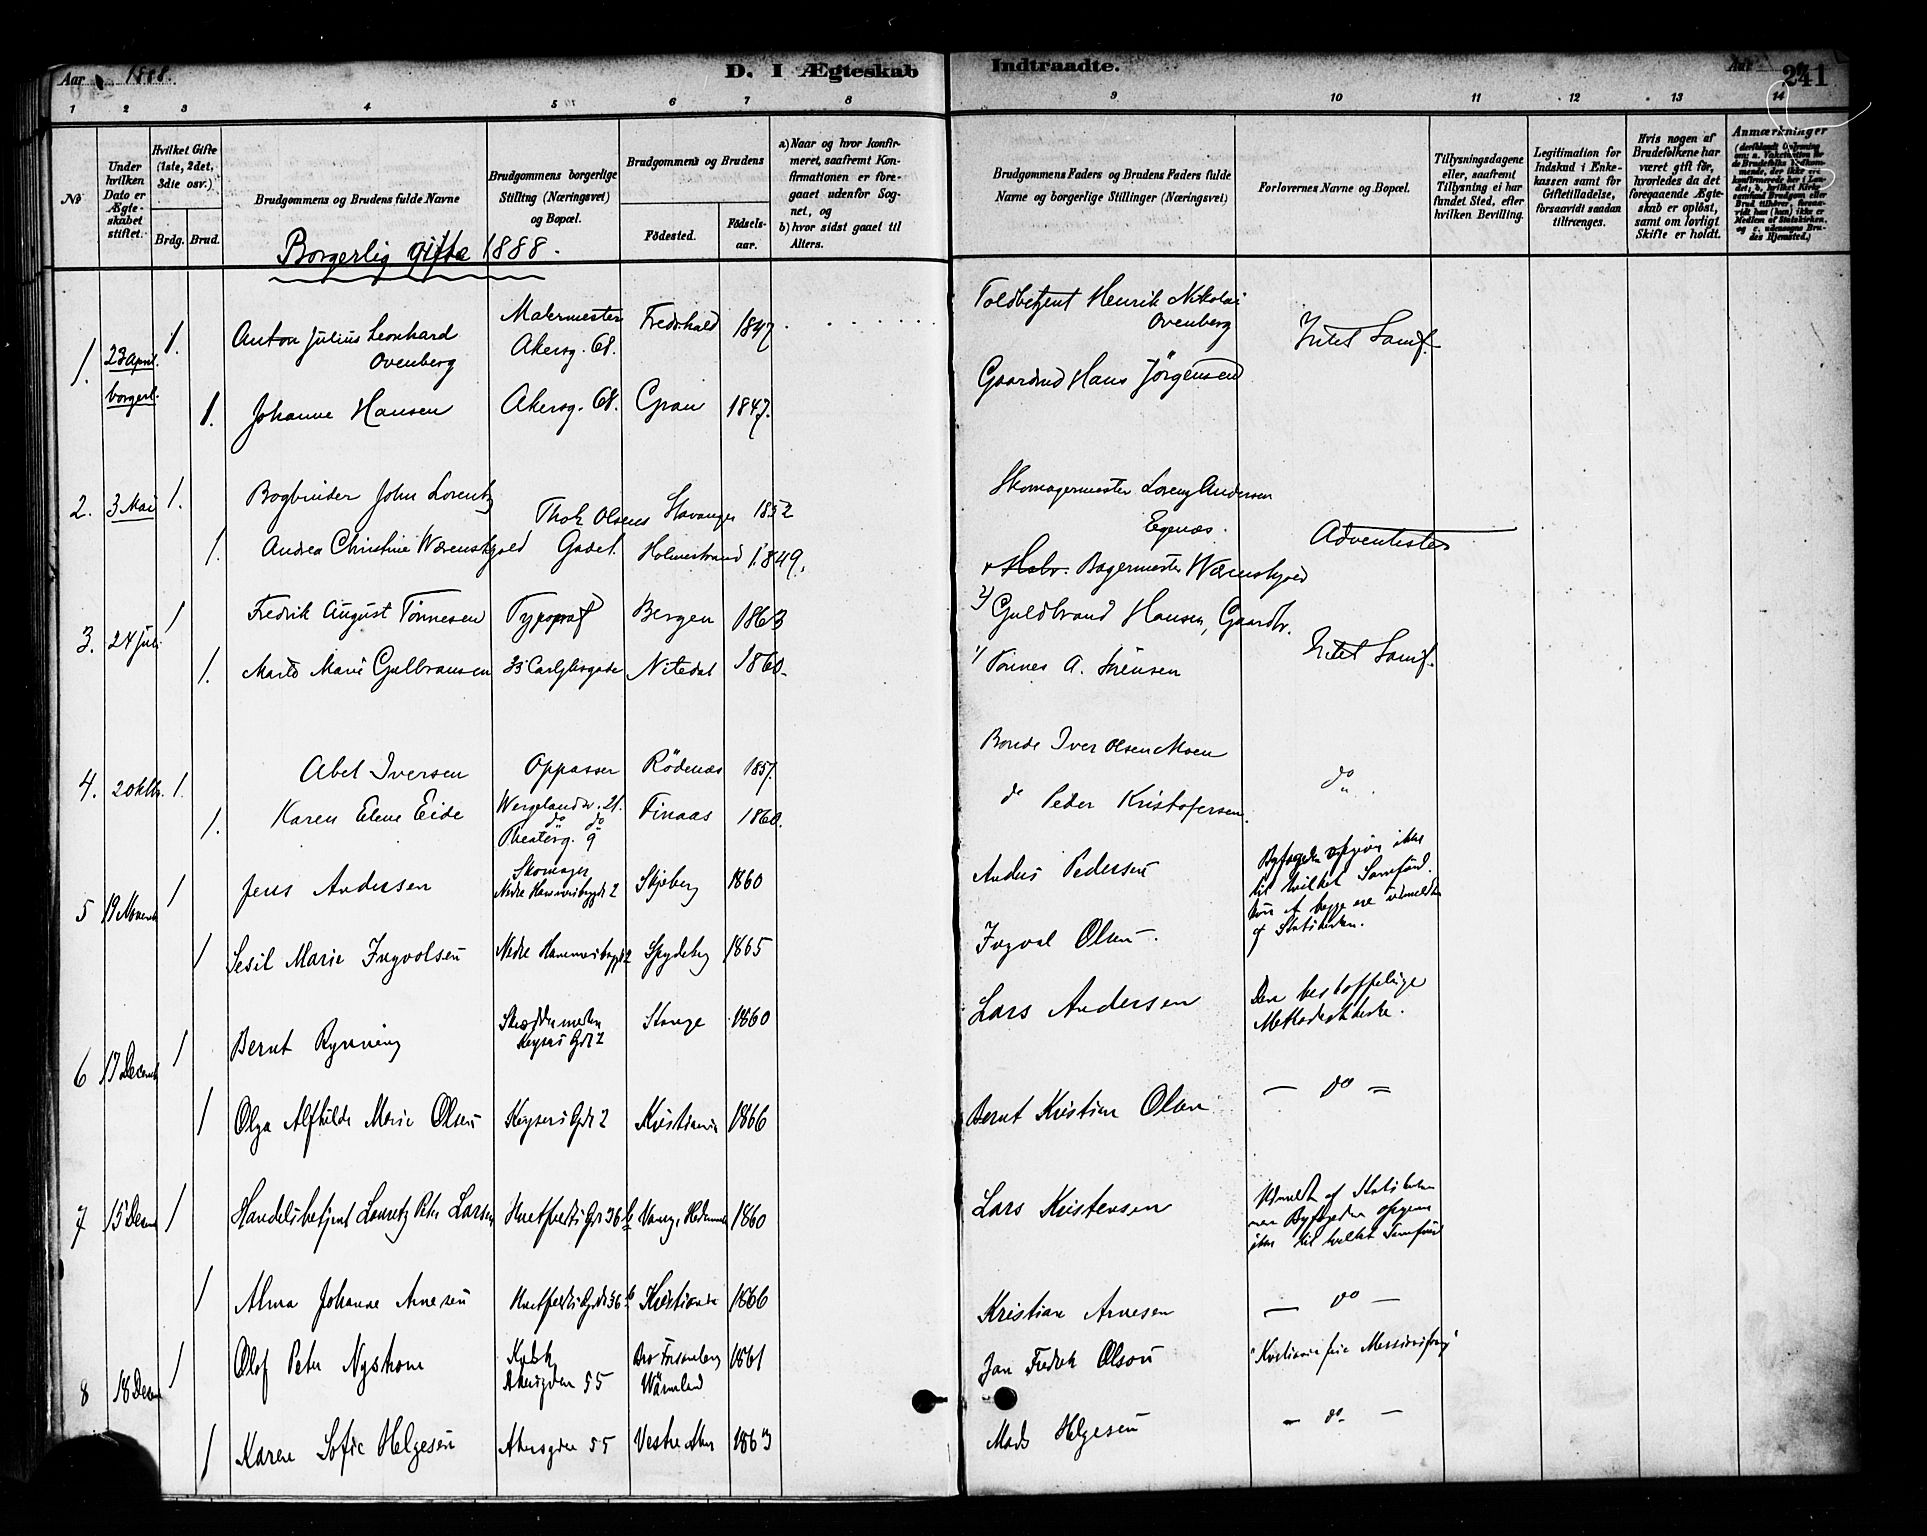 Aar 1888. D. I Ægteskab Indtraadte. Aar 241
1 2 3 4 5 6 7 8 9 10 11 12 13 14
No
Under hvilken Dato er Ægteskabet stiftet.
Hvilket Gifte (1ste, 2det, 3die osv.)
Brdg. Brud.
Brudgommens og Brudens fulde Navne
Brudgommens borgerlige Stilling (Næringsvei) og Bopæl.
Brudgommens og Brudens
Fødested. Fødselsaar.
a) Naar og hvor konfirmeret, saafremt Konfirmationen er foregaaet udenfor Sognet, og
b) hvor sidst gaaet til Alters.
Brudgommens Faders og Brudens Faders fulde Navne og borgerlige Stillinger (Næringsvei)
Forlovernes Navne og Bopæl.
Tillysningsdagene eller, saafremt Tillysning ei har fundet Sted, efter hvilken Bevilling.
Legitimation for Indskud i Enkekassen samt for Giftetilladelse, forsaavidt saadan tiltrænges.
Hvis nogen af Brudefolkene har været gift før, hvorledes da det foregaaende Ægteskab er opløst, samt om lovligt Skifte er holdt.
Anmærkninger
Borgerlig gifte 1888.
1. 23 April. borgerl. 1. Anton Julius Leonhard Ovenberg Malermester Akersg. 68. Fredrhald 1847 Toldbetjent Henrik Nikolai Ovenberg Intet Samf.
1. Johanne Hansen Akersg. 68. Gran 1847. Gaardmd Hans Jörgensen
2. 3 Mai 1. Bogbinder John Lorentz Thok Olsens Gade 1. Stavanger 1852 Skomagermester Lorenz Andersen Egenæs. Adventister
1. Andrea Christine Wærenskjold Holmestrand 1849. Bagermester Wærenskjold
3. 24 Juli 1 Fredrik August Tönnesen Typograf Bergen 1863 2) Guldbrand Hansen, Gaardbr. Intet Samf.
1. Marie Gulbransen 33 Nitedal 1860. 1) Tönnes A. Sörensen
4. 20 1. Abel Iversen Oppasser Wergelandsv. 21. Rödenæs 1857. Bonde Iver Olsen Moen do
1. Karen Elene Eide do do Theaterg. 9 Finaas 1860. do Peder Kristofersen.
5 19 Novemb 1 Jens Andersen Skomager Nedre 2 Skjeberg 1860 Anders Pedersen Byfogden opgiver ikke til hvilket Samfund. kun at begge ere udmeldte af Statskirken.
1 Sesil Marie Ingvolsen Nedre 2 Spydeberg 1865 Ingval Olsen.
6 17 Decemb 1 Bernt Rynning Skræddermester Keysers Gd 2 Stange 1860 Lars Andersen Den Methodistkirke.
1 Olga Alfhilde Marie Olsen Keysers Gd 2 Kristiania 1866 Bernt Kristian Olsen — do —
7 15 Decem 1 Handelsbetjent Lauritz Peter Larsen Huitfeldts Gd 36 b Vang, Hedemark 1860 Lars Kristensen Udmeldt af Statskirken men Byfogden opgiver ikke til hvilket Samfund
1 Alma Johanne Arnesen Huitfeldts Gd 36 b Kristiania 1866 Kristian Arnesen — do —
8 18 Decem 1 Olof Peter Nystrom Kusk Akersgden 55 Wärmland 1861 Jan Fredrik Olson "Kristiania frie Missionsforg"
1 Karen Sofie Helgesen Akersgden 55 Vestre Aker 1863 Mads Helgesen — do —